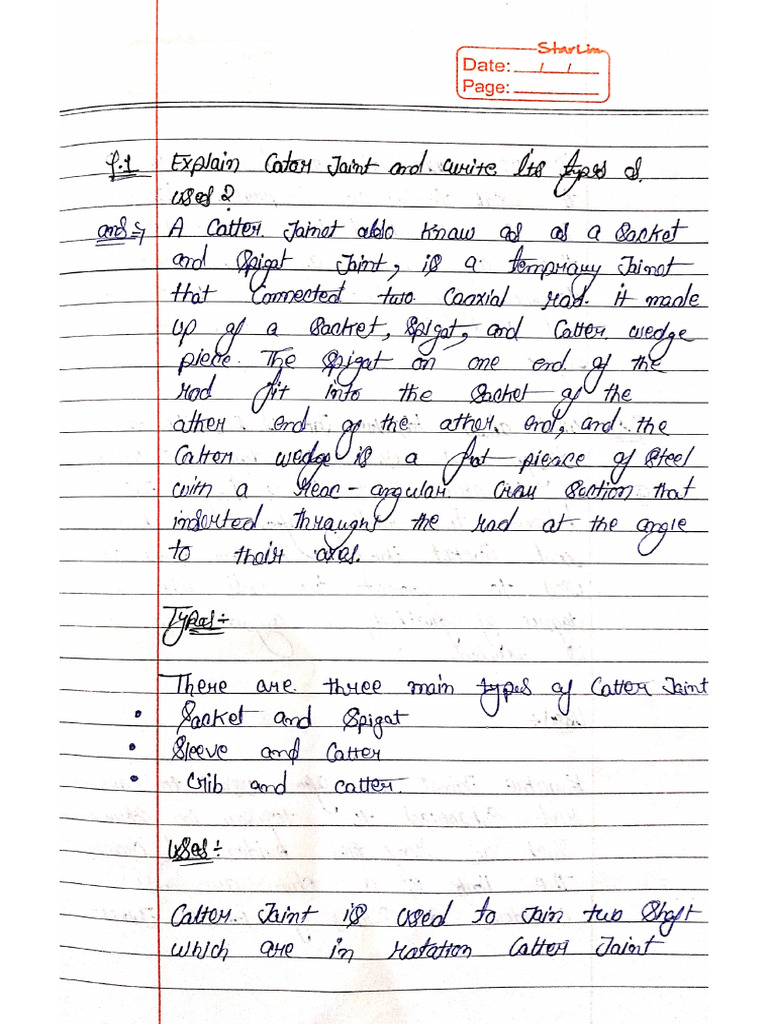 StarLine
Date: / /
Page:
Q.1 Explain Cotor Joint and write Its types &
uses ?
ans:- A Cotter Joinot also know as as a Socket
and Spigot Joint, is a temprary Joinot
that Connected two Coaxial rod. it made
up of a Socket, Spigot, and Cotter wedge
piece. The Spigot on one end of the
rod fit into the Socket of the
other end of the other end, and the
Cotter wedge is a flat pierce of Steel
with a reac-angular Cross Section that
inserted throught the rod at the angle
to their axes.
Types:-
There are three main types of Cotter Joint
• Socket and Spigot
• Sleeve and Cotter
• Crib and cotter.
uses:-
Cotter Joint is used to Join two Shaft
which are in rotation Cotter Joint